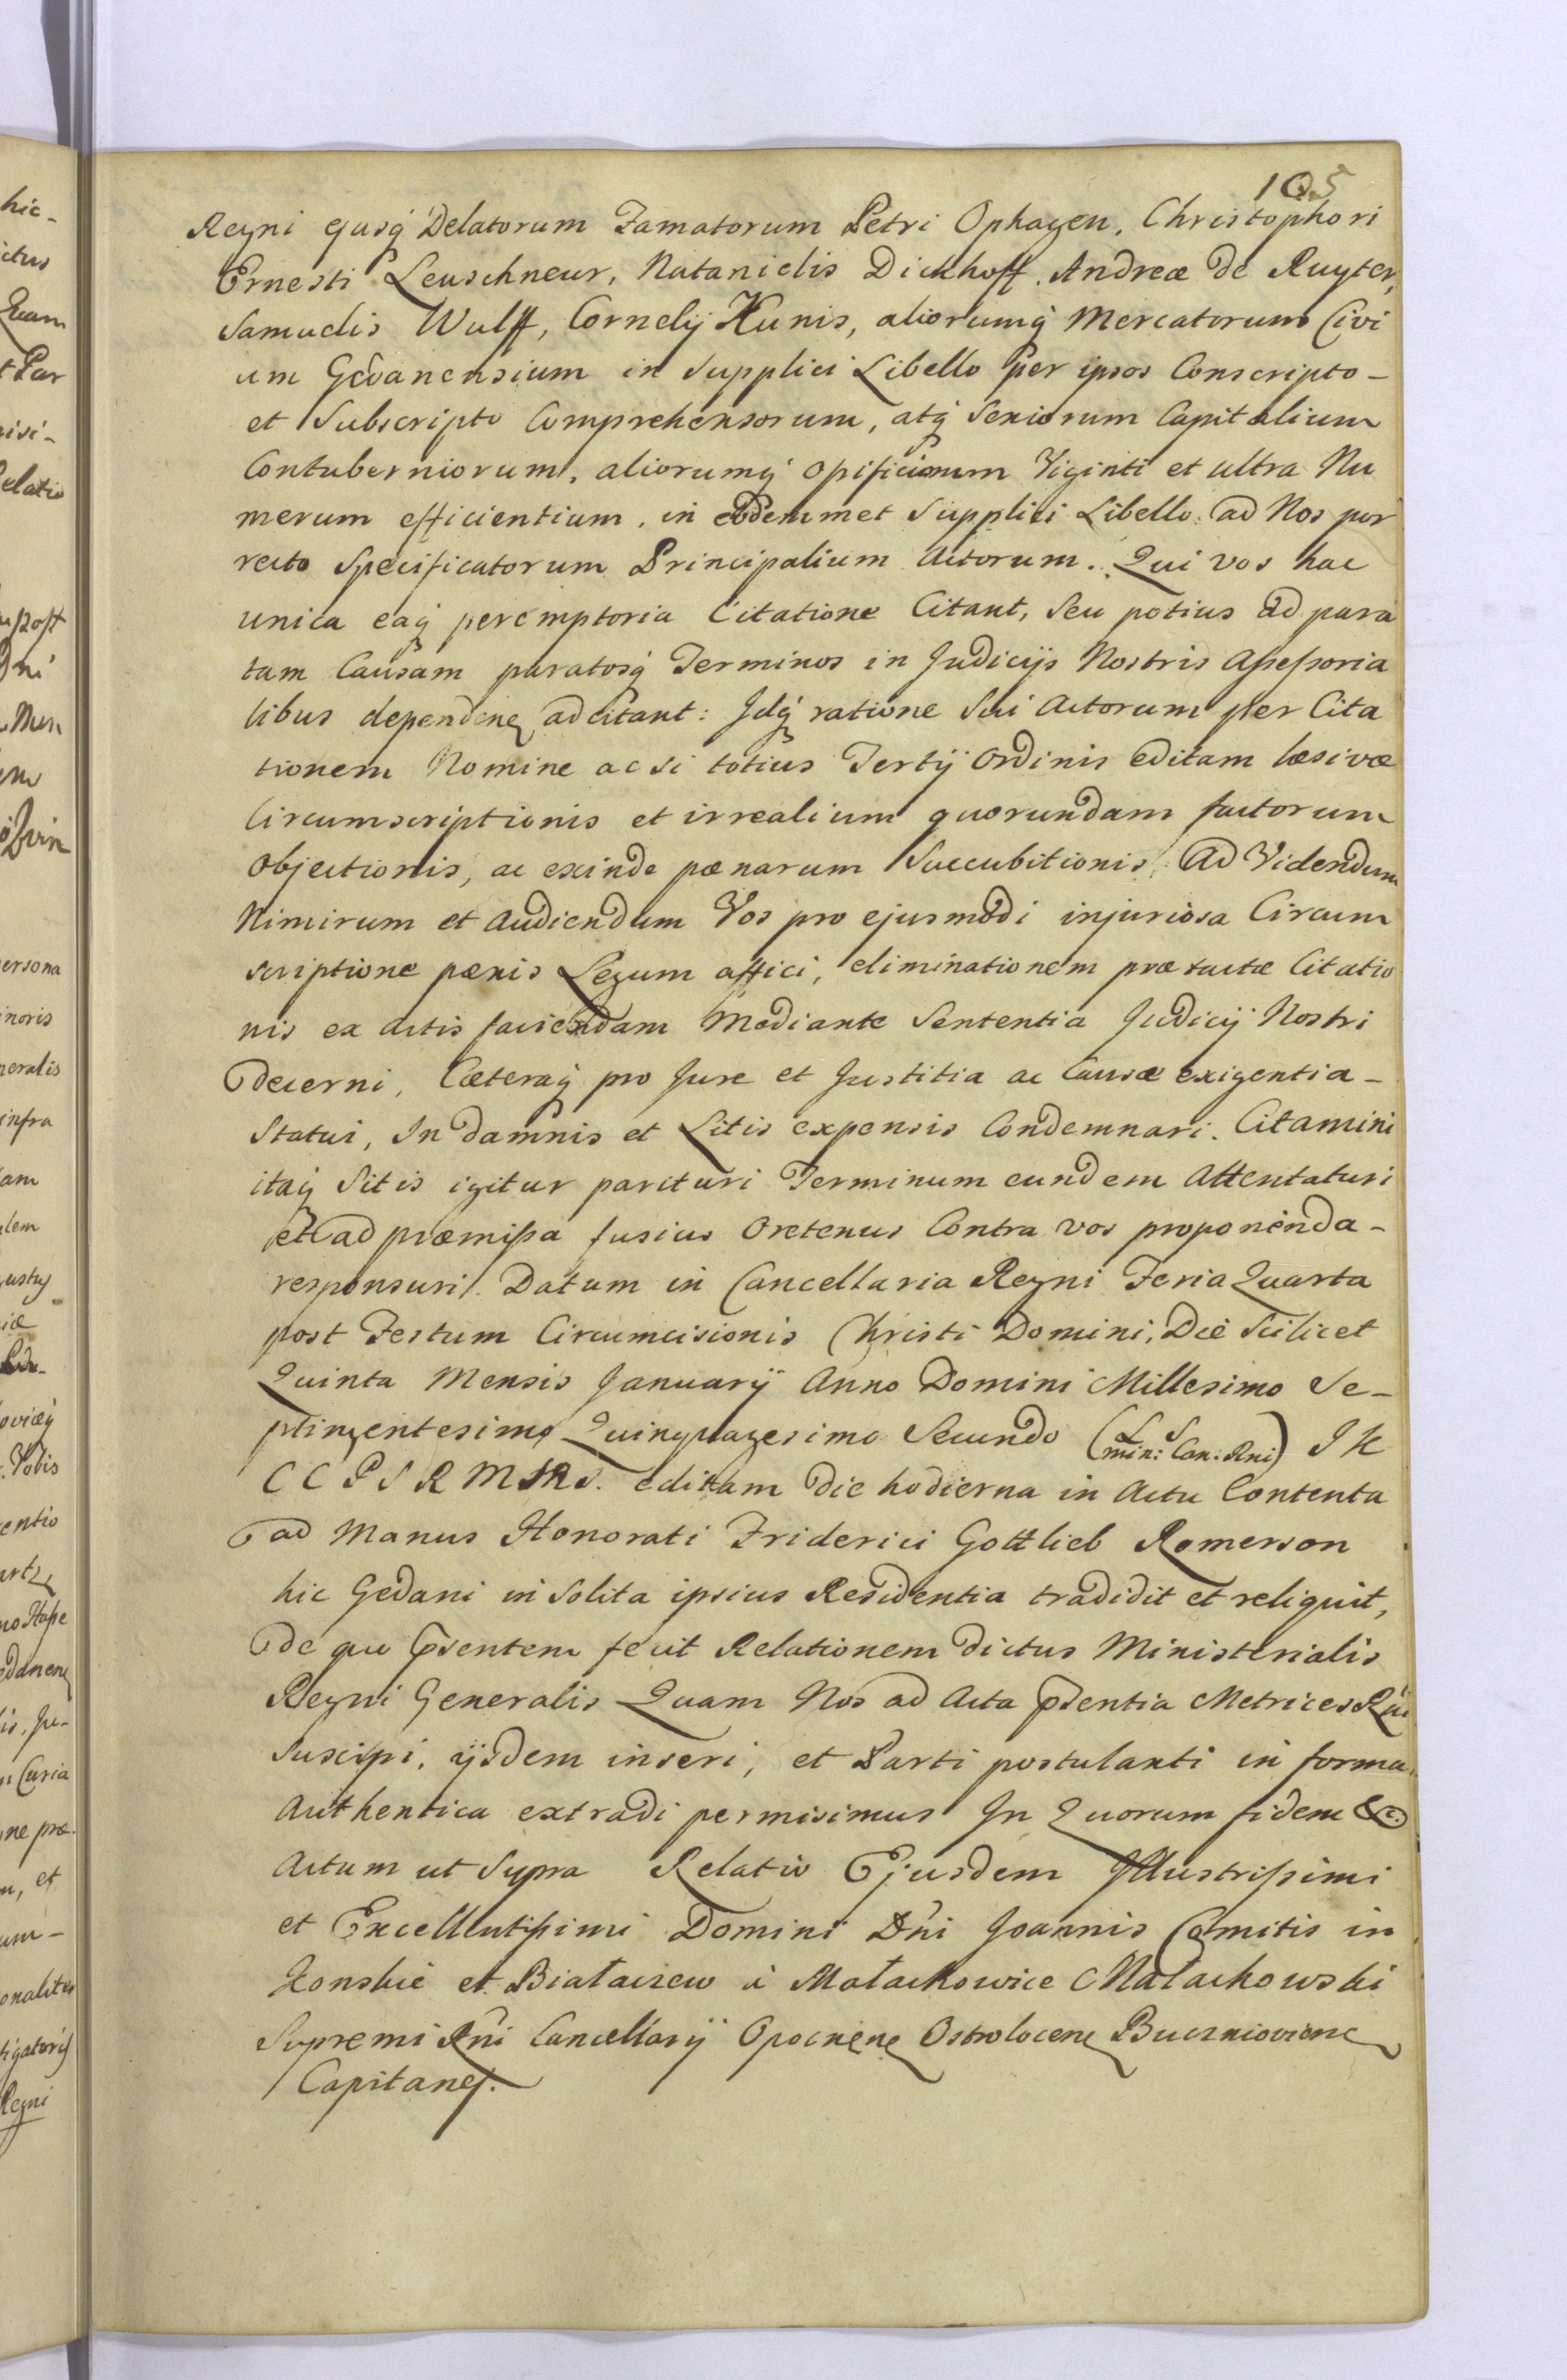 105
Regni ejusq́ Delatorum Famatorum Petri Ophagen, Christophori
Ernesti Leuschneur, Natanielis Dickhoff. Andreæ de Ruyter,
Samuelis Wulff, Cornelij Kunis, aliorumq́ Mercatorum Civi
um Gedanensium in Supplici Libello per ipsos Conscripto-
et Subscripto Comprehensorum, atq́ Seniorum Capitalium
Contuberniorum, aliorumq́ opificiorum Viginti et ultra Nu
merum efficientium, in eodemmet Supplici Libello ad Nos por
recto Specificatorum Principalium Actorum. Qui vos hac
unica eaq́ peremptoria Citatione Citant, Seu potius ad para
tam Causam paratosq́ Terminos in Judicijs Nostris Aßeßoria
libus dependen adcitant: Idq́ ratione Sui Actorum per Cita
tionem Nomine ac si totius Tertij Ordinis editam læsivæ
Circumscriptionis et irrealium quorundam factorum
Objectionis, ac exinde pænarum Succubitionis, Ad Videndum
Nimirum et Audiendum Vos pro ejusmodi injuriosa Circum
scriptione pænis Legum affici, eliminationem prætactæ Citatio
nis ex Actis faciendam Mediante Sententia Judicij Nostri
decerni, Cæteraq́ pro Jure et Justitia ac Causæ exigentia-
Statui, In damnis et Litis expensis Condemnari. Citamini
itaq́ Sitis igitur parituri Terminum eundem Attentaturi
et ad præmißa fusius Oretenus Contra vos proponenda-
responsuri. Datum in Cancellaria Regni Feria Quarta
post Festum Circumcisionis Christi Domini, Die Scilicet
Quinta Mensis Januarij Anno Domini Millesimo Se-
ptingentesimo Quinquagesimo Secundo (L S min: Can: Rni)
C C P S R M editam die hodierna in Actu Contenta
ad Manus Honorati Friderici Gottlieb Romerson
hic Gedani in Solita ipsius Residentia tradidit et reliquit,
de quo pꝛsentem fecit Relationem dictus Ministerialis
Regni Generalis Quam Nos ad Acta pꝛsentia Metrices Rni
Suscipi, ijsdem inseri, et Parti postulanti in forma
Authentica extradi permisimus In Quorum fidem &c.
Actum ut Supra Relatio Ejusdem Illustrißimi
et Excellentißimi Domini Dn̄i Joannis Comitis in
Konskie et Białaczew à Małachowice Małachowski
Supremi Rn̄i Cancellarij Opocnen Ostrolecen
Capitanej.
hic-
ctus
Quam
elatio
persona
inoris
neralis
infra
am
lem
Vobis
entio
Curia
m, et
um-
Regni